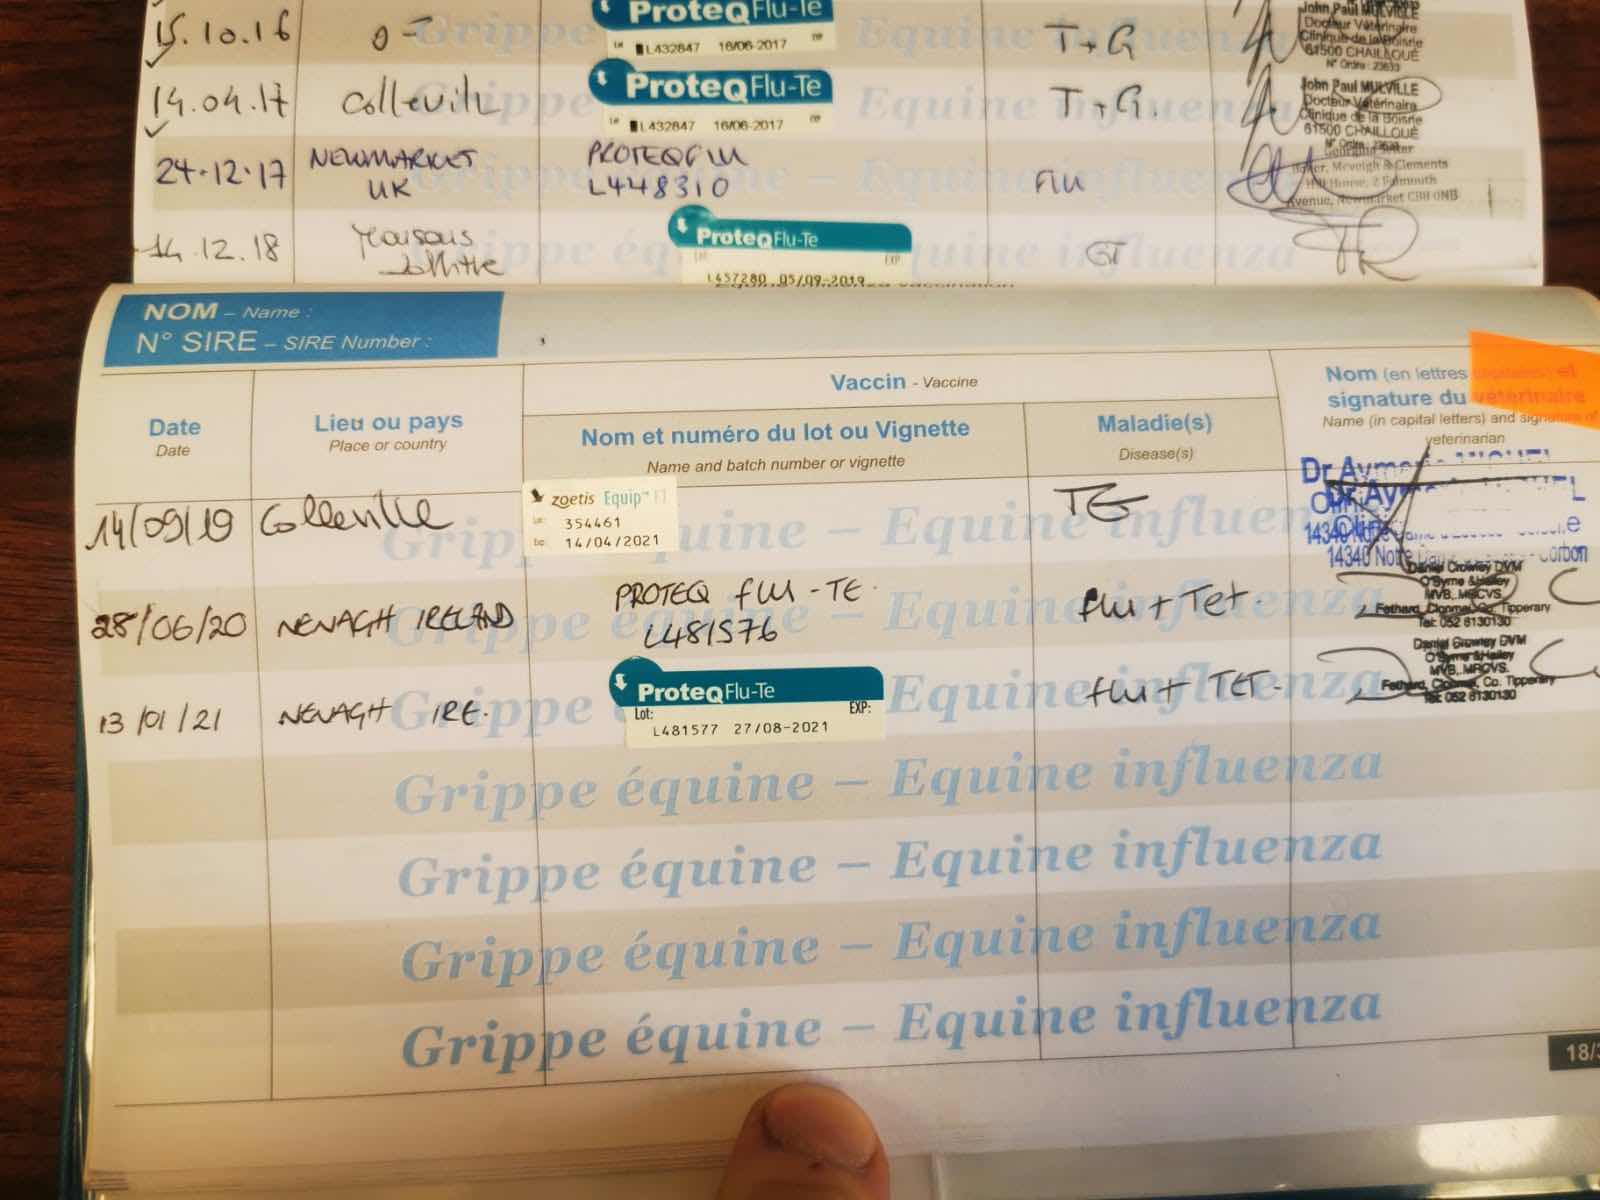 ProteqFlu-Te
15.10.16
L432847 16/06/2017
T+G
John Paul MULVILLE
Docteur Vétérinaire
Clinique de la Boisrie
61500 CHAILLOUÉ
N° Ordre : 23633
14.04.17
Colleville
ProteqFlu-Te
L432847 16/06/2017
T+G.
John Paul MULVILLE
Docteur Vétérinaire
Clinique de la Boisrie
61500 CHAILLOUÉ
N° Ordre
24.12.17
NEWMARKET
UK
PROTEQFLU
L448310
FLU
Mcveigh & Clements
2 Falmouth
Avenue, Newmarket CB8 0NB
14.12.18
ProteqFlu-Te
EXP
L457280 05/09-2019
GT
Grippe équine – Equine influenza
Grippe équine – Equine influenza
Grippe équine – Equine influenza
Grippe équine – Equine influenza
NOM – Name :
N° SIRE – SIRE Number :
Date
Date
Lieu ou pays
Place or country
Vaccin - Vaccine
Nom et numéro du lot ou Vignette
Name and batch number or vignette
Maladie(s)
Disease(s)
Nom (en lettres capitales) et
signature du vétérinaire
Name (in capital letters) and signature of
veterinarian
14/09/19
Colleville
zoetis Equip FT
354461
14/04/2021
TG
Grippe équine – Equine influenza
14340 Notre
28/06/20
NENAGH IRELAND
PROTEQ FLU-TE.
L481576
flu + Tet.
Daniel Crowley DVM
O'Byrne & Halley
MVB, MRCVS.
Fethard, Clonmel, Co. Tipperary
Tel: 052 6130130
Grippe équine – Equine influenza
13/01/21
NENAGH IRE.
ProteqFlu-Te
Lot: EXP:
L481577 27/08-2021
flu + TET.
Daniel Crowley DVM
O'Byrne & Halley
MVB, MRCVS.
Fethard, Clonmel, Co. Tipperary
Tel: 052 6130130
Grippe équine – Equine influenza
Grippe équine – Equine influenza
Grippe équine – Equine influenza
Grippe équine – Equine influenza
Grippe équine – Equine influenza
18/3